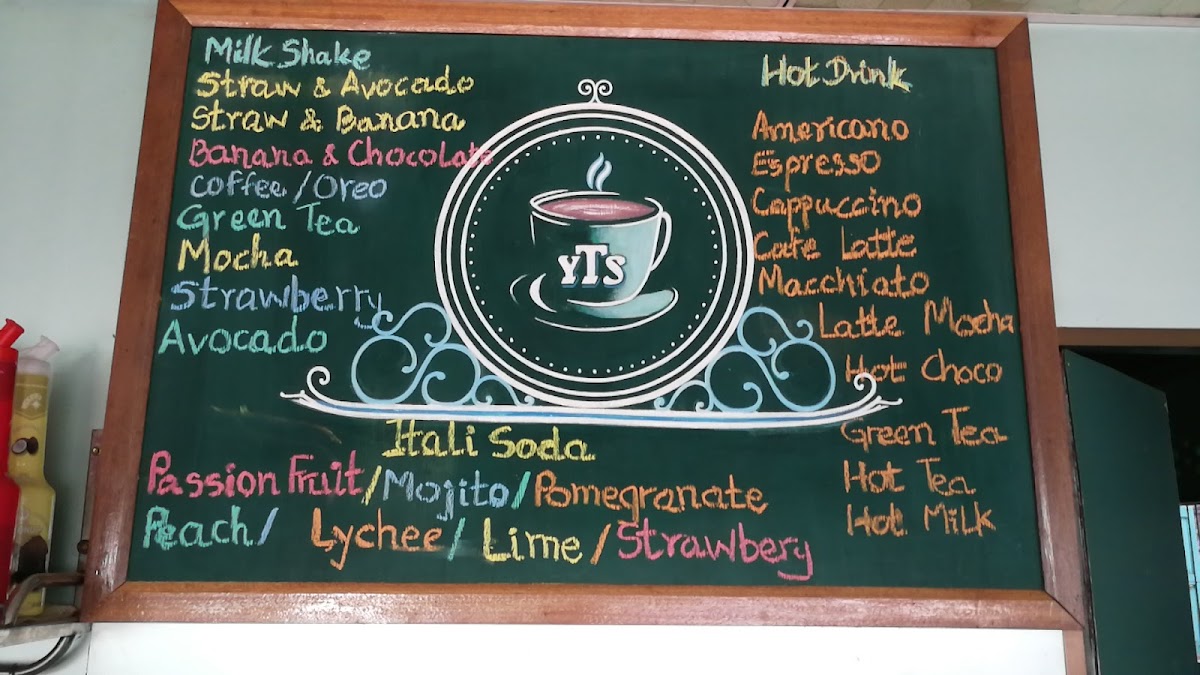 Milk Shake
Straw & Avocado
Straw & Banana
Banana & Chocolate
Coffee/Oreo
Green Tea
Mocha
Strawberry
Avocado
YTS
Hot Drink
Americano
Espresso
Cappuccino
Cafe Latte
Macchiato
Latte Mocha
Hot Choco
Green Tea
Hot Tea
Hot Milk
Itali Soda
Passion Fruit/Mojito/Pomegranate
Peach/ Lychee/ Lime/Strawbery